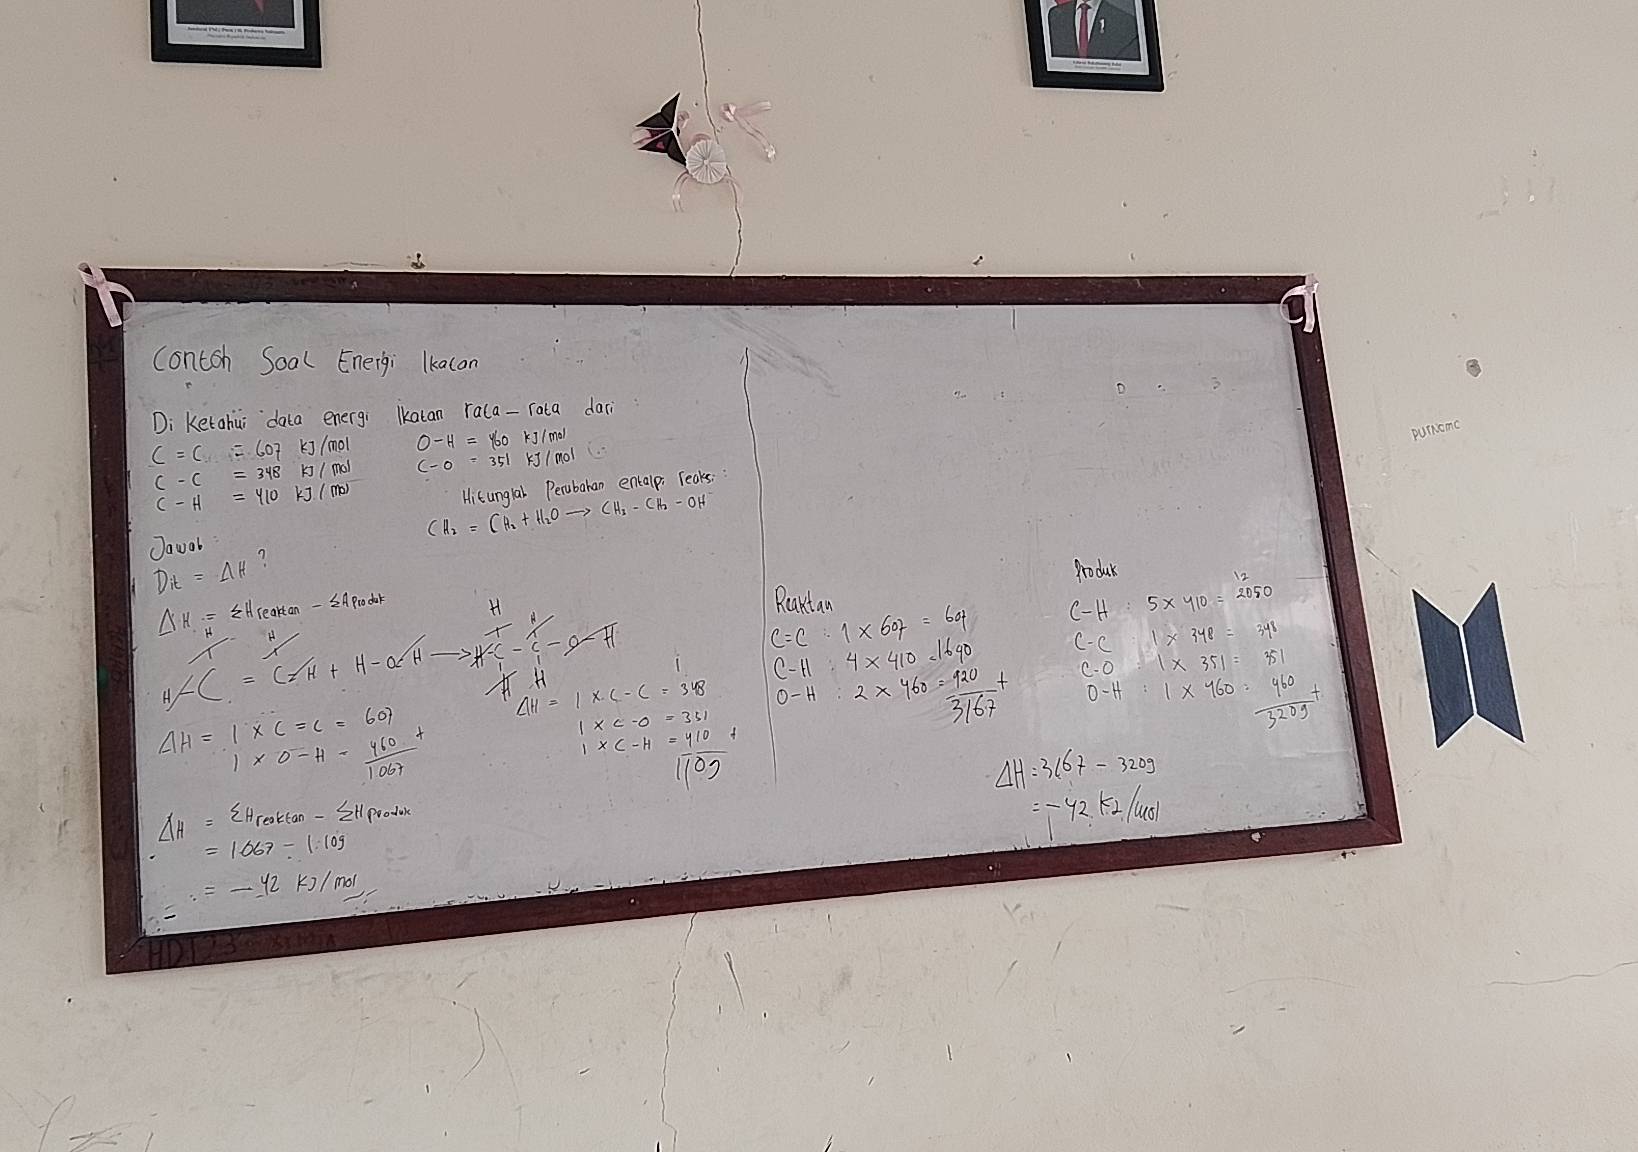 Contoh Soal Energi Ikatan
Di Ketahui data energi Ikatan rata-rata dari :
C = C = 607 KJ/mol
C - C = 348 KJ/mol
C - H = 410 KJ/mol
O-H = 460 KJ/mol
C-O = 351 KJ/mol
Hitunglah Perubahan entalpi reaksi :
CH₂ = CH₂ + H₂O → CH₃ - CH₂ - OH
Jawab :
Dit = ΔH ?
ΔH = ΣHreaktan - ΣHproduk
H H H H
H-C = C-H + H-O-H → H-C - C - O-H
H H
ΔH = 1 × C = C = 607
1 × O-H = 460 +
1.067
ΔH = 1 × C-C = 348
1 × C-O = 351
1 × C-H = 410 +
1109
ΔH = ΣHreaktan - ΣHproduk
= 1.067 - 1.109
= -42 KJ/mol
Reaktan
C=C : 1 × 607 = 607
C-H : 4 × 410 = 1640
O-H : 2 × 460 = 920 +
3167
Produk
12
C-H : 5 × 410 = 2050
C-C : 1 × 348 = 348
C-O : 1 × 351 = 351
O-H : 1 × 460 = 460 +
3209
ΔH = 3167 - 3209
= -42 KJ/mol
PURNOMO